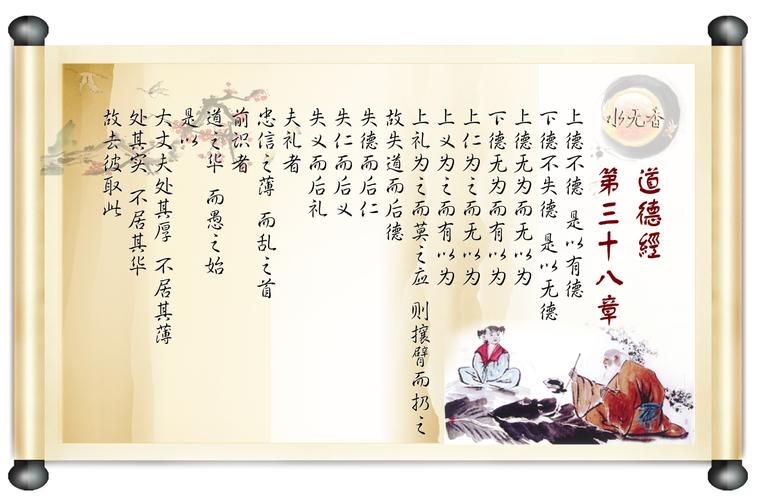 道德經
第三十八章
上德不德 是以有德
下德不失德 是以无德
上德无为而无以为
下德无为而有以为
上仁为之而无以为
上义为之而有以为
上礼为之而莫之应 则攘臂而扔之
故失道而后德
失德而后仁
失仁而后义
失义而后礼
夫礼者
忠信之薄 而乱之首
前识者
道之华 而愚之始
是以
大丈夫处其厚 不居其薄
处其实 不居其华
故去彼取此
水无香